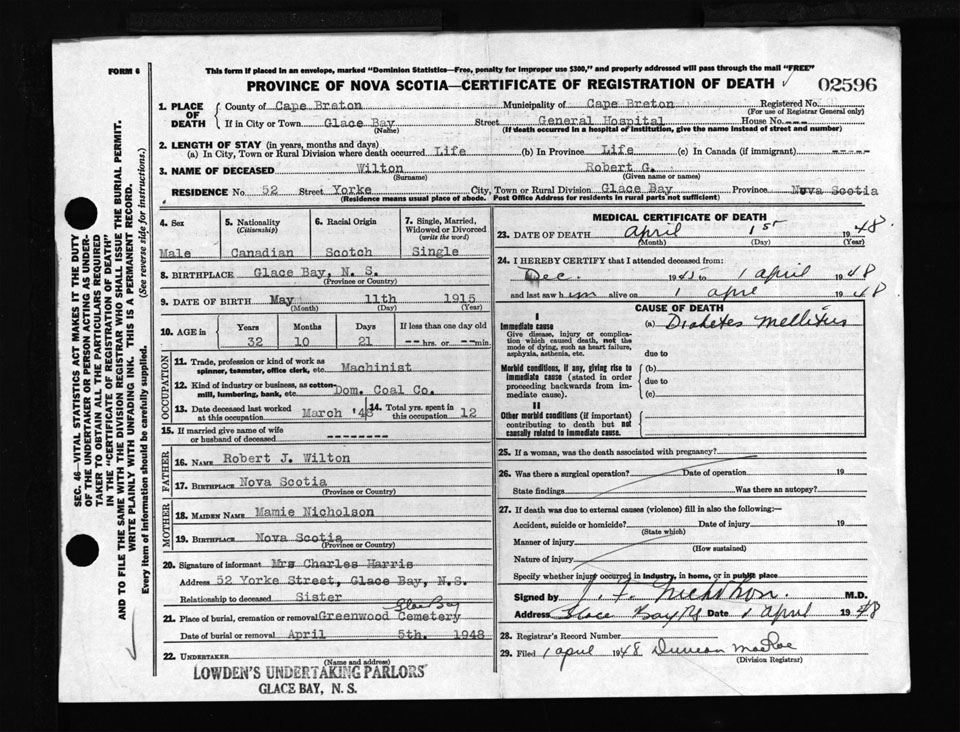 FORM 6
This form if placed in an envelope, marked "Dominion Statistics—Free, penalty for improper use $300," and properly addressed will pass through the mail "FREE"
PROVINCE OF NOVA SCOTIA—CERTIFICATE OF REGISTRATION OF DEATH
02596
1. PLACE OF DEATH
County of Cape Breton Municipality of Cape Breton Registered No.
(For use of Registrar General only)
If in City or Town Glace Bay Street General Hospital House No. ---
(Name) (If death occurred in a hospital of institution, give the name instead of street and number)
2. LENGTH OF STAY (in years, months and days)
(a) In City, Town or Rural Division where death occurred Life (b) In Province Life (c) In Canada (if immigrant) ----
3. NAME OF DECEASED Wilton Robert G.
(Surname) (Given name or names)
RESIDENCE No. 52 Street Yorke City, Town or Rural Division Glace Bay Province Nova Scotia
(Residence means usual place of abode. Post Office Address for residents in rural parts not sufficient)
4. Sex
Male
5. Nationality
(Citizenship)
Canadian
6. Racial Origin
Scotch
7. Single, Married, Widowed or Divorced
(write the word)
Single
8. BIRTHPLACE Glace Bay, N. S.
(Province or Country)
9. DATE OF BIRTH May 11th 1915
(Month) (Day) (Year)
10. AGE in
Years Months Days If less than one day old
32 10 21 -- hrs. or -- min.
OCCUPATION
11. Trade, profession or kind of work as spinner, teamster, office clerk, etc. Machinist
12. Kind of industry or business, as cotton-mill, lumbering, bank, etc. Dom. Coal Co.
13. Date deceased last worked at this occupation March '48
14. Total yrs. spent in this occupation 12
15. If married give name of wife or husband of deceased --------
FATHER
16. NAME Robert J. Wilton
17. BIRTHPLACE Nova Scotia
(Province or Country)
MOTHER
18. MAIDEN NAME Mamie Nicholson
19. BIRTHPLACE Nova Scotia
(Province or Country)
20. Signature of informant Mrs Charles Harris
Address 52 Yorke Street, Glace Bay, N.S.
Relationship to deceased Sister
Glace Bay
21. Place of burial, cremation or removal Greenwood Cemetery
Date of burial or removal April 5th. 1948
22. UNDERTAKER
(Name and address)
LOWDEN'S UNDERTAKING PARLORS
GLACE BAY, N. S.
MEDICAL CERTIFICATE OF DEATH
23. DATE OF DEATH April 1st 1948.
(Month) (Day) (Year)
24. I HEREBY CERTIFY that I attended deceased from:
Dec. 1945 to 1 april 1948
and last saw him alive on 1 april 1948
CAUSE OF DEATH
I
Immediate cause
Give disease, injury or complication which caused death, not the mode of dying, such as heart failure, asphyxia, asthenia, etc.
(a) Diabetes Mellitus
due to
Morbid conditions, if any, giving rise to immediate cause (stated in order proceeding backwards from immediate cause).
(b)
due to
(c)
II
Other morbid conditions (if important) contributing to death but not causally related to immediate cause.
25. If a woman, was the death associated with pregnancy?
26. Was there a surgical operation? Date of operation 19
State findings Was there an autopsy?
27. If death was due to external causes (violence) fill in also the following:—
Accident, suicide or homicide? Date of injury 19
(State which)
Manner of injury
(How sustained)
Nature of injury
Specify whether injury occurred in industry, in home, or in public place
Signed by J. F. Nicholson. M.D.
Address Glace Bay NS Date 1 April 1948
28. Registrar's Record Number
29. Filed 1 april 1948 Duncan MacRae
(Division Registrar)
SEC. 46—VITAL STATISTICS ACT MAKES IT THE DUTY
OF THE UNDERTAKER OR PERSON ACTING AS UNDER-
TAKER TO OBTAIN ALL THE PARTICULARS REQUIRED
IN THE "CERTIFICATE OF REGISTRATION OF DEATH"
AND TO FILE THE SAME WITH THE DIVISION REGISTRAR WHO SHALL ISSUE THE BURIAL PERMIT.
WRITE PLAINLY WITH UNFADING INK. THIS IS A PERMANENT RECORD.
Every item of Information should be carefully supplied. (See reverse side for instructions.)